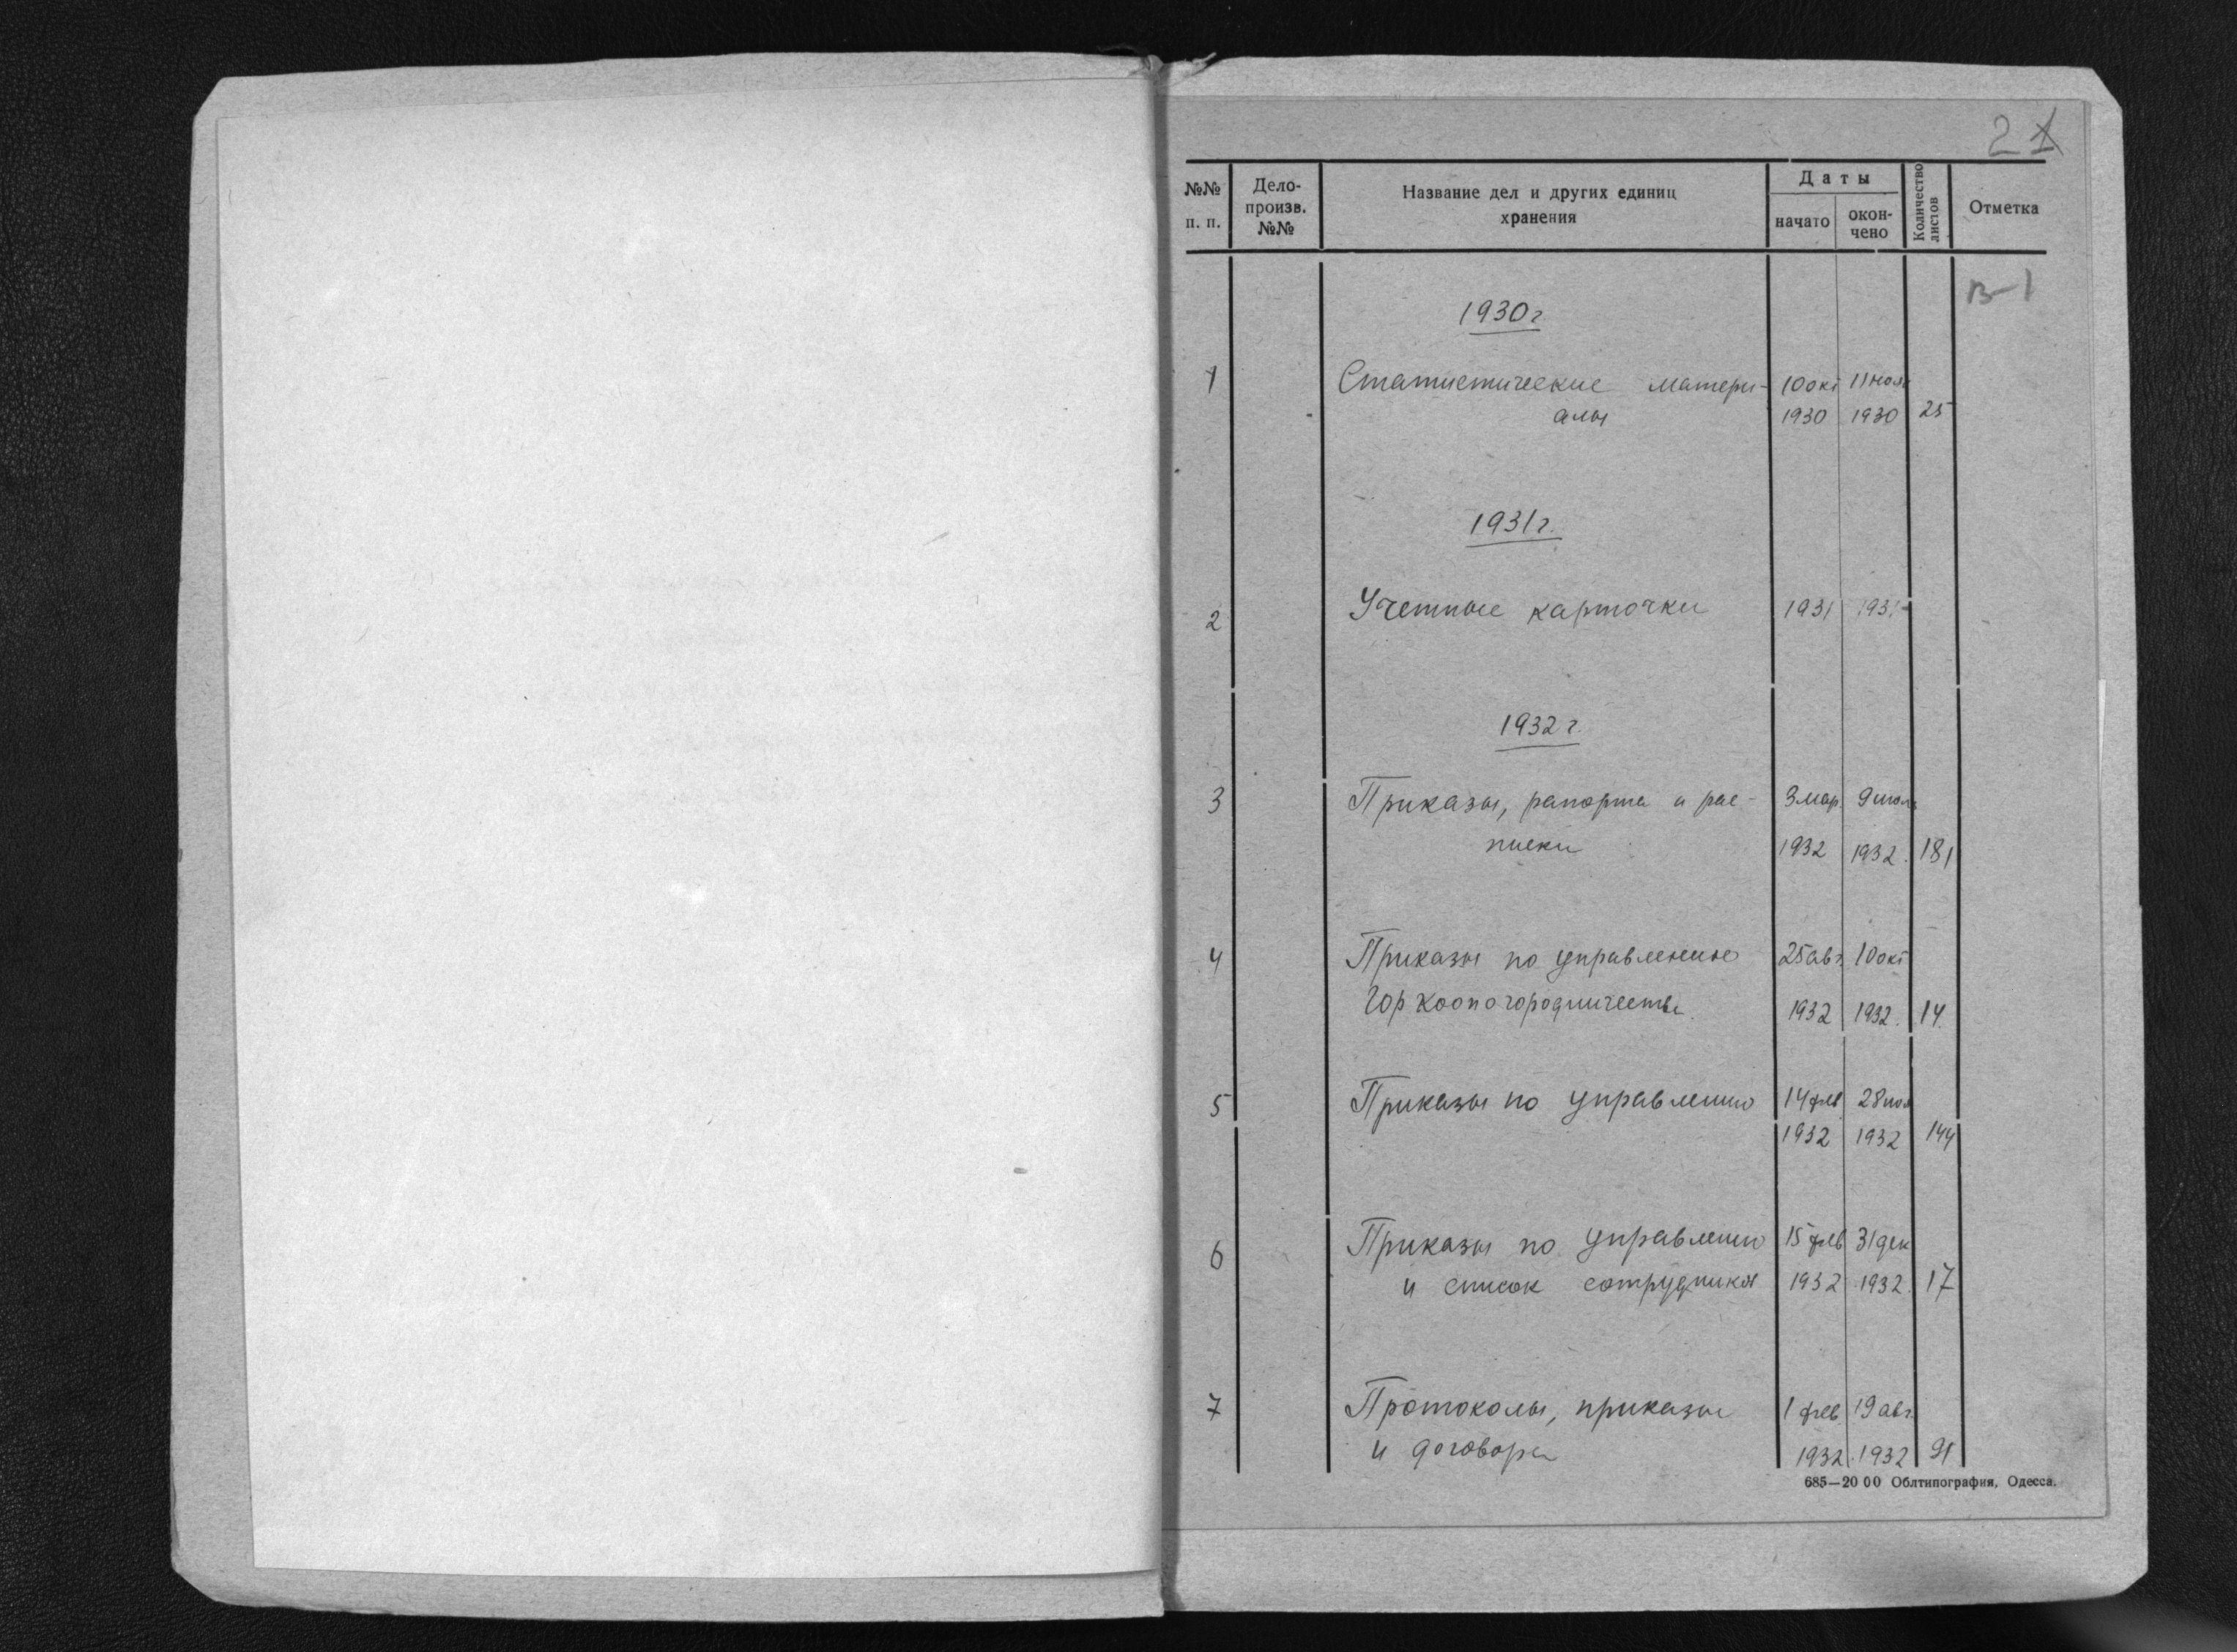 2 1
№№ п. п.
Дело-произв. №№
Название дел и других единиц хранения
Даты
начато
окончено
Количество листов
Отметка
В-1
1930 г
1 Статистические матери- 10 окт 11 ноя
алы 1930 1930 25
1931 г.
2 Учетные карточки 1931 1931
1932 г.
3 Приказы, рапорта и рас- 3 мар. 9 июль
писки 1932 1932. 181
4 Приказы по управлению 25 авг. 10 окт
Горкоопогородничества 1932 1932. 14
5 Приказы по управлению 14 фев 28 ноя
1932 1932 144
6 Приказы по управлению 15 фев 31 дек
и список сотрудников 1932 1932. 17
7 Протоколы, приказы 1 фев 19 авг.
и договора 1932 1932 91
685—20 00 Облтипография, Одесса.